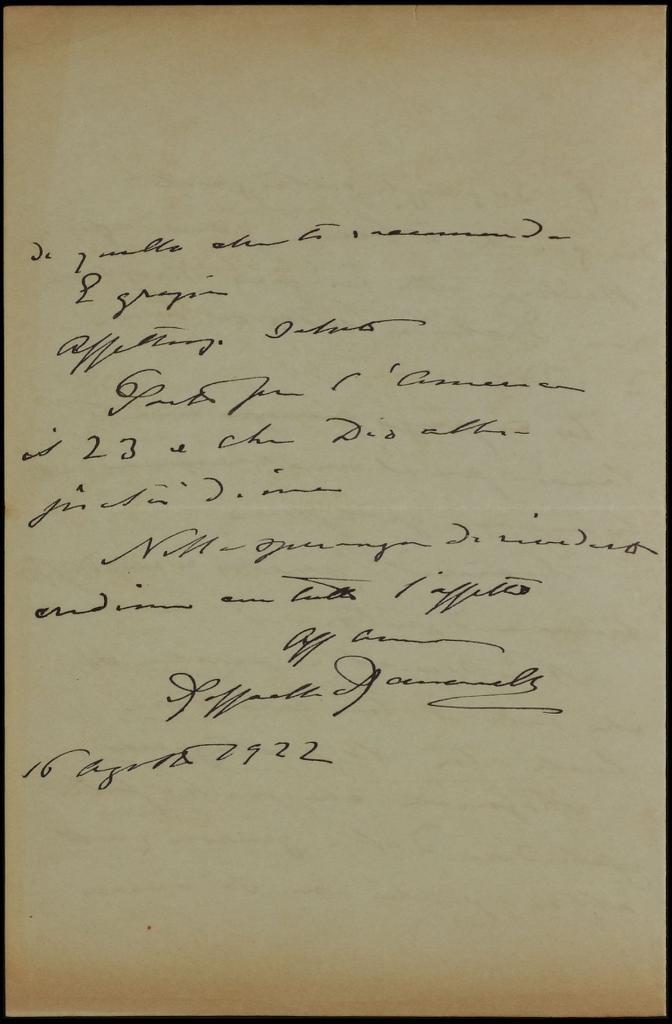 di quello che ti raccomando
E grazie
Affettuosi saluti
Parto per l'America
il 23 e che Dio abbia
pietà di me
Nella speranza di rivederti
credimi con tutto l'affetto
Aff amico
Raffaello
16 agosto 1922